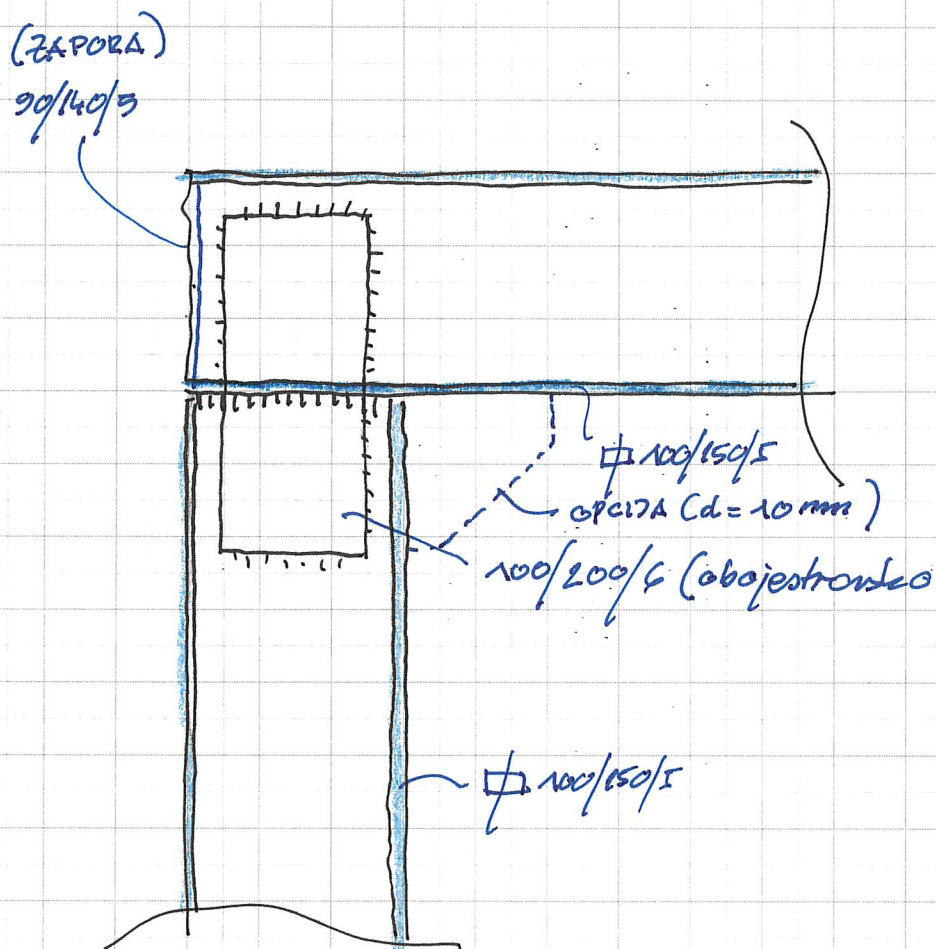 (ZAPORA)
90/140/5
100/150/5
OPCIJA (d = 10 mm)
100/200/6 (obojestransko
100/150/5